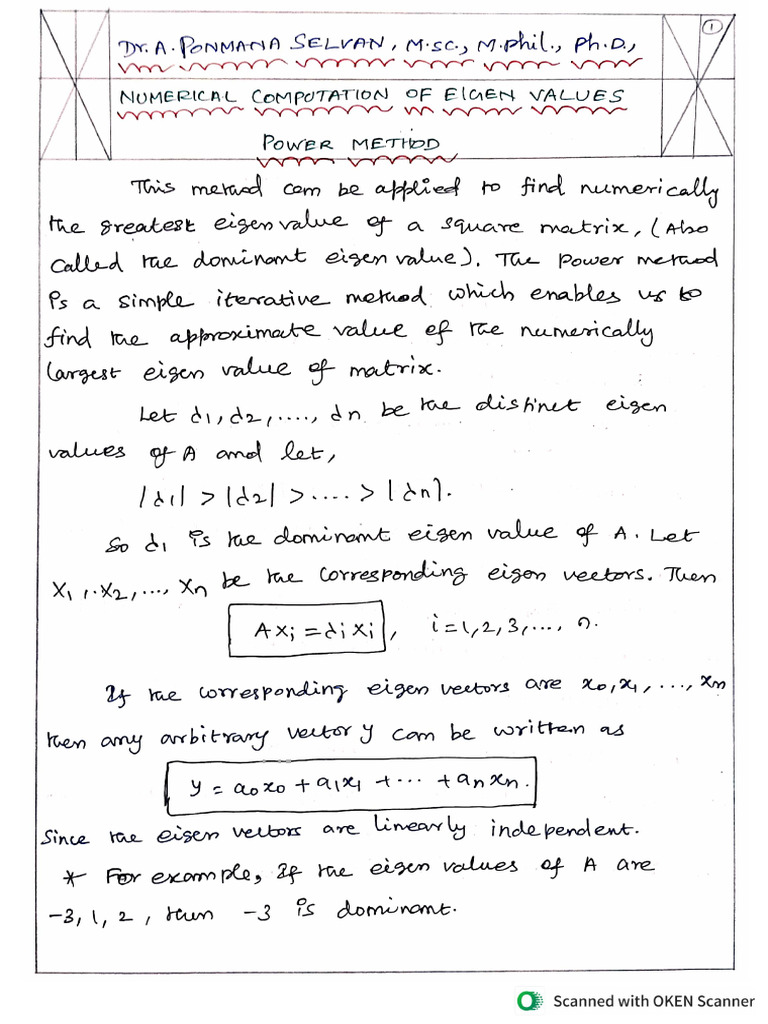 1
Dr. A. PONMANA SELVAN, M.Sc., M.Phil., Ph.D.,
NUMERICAL COMPUTATION OF EIGEN VALUES
POWER METHOD
This method can be applied to find numerically
the greatest eigen value of a square matrix, (Also
called the dominant eigen value). The Power method
is a simple iterative method which enables us to
find the approximate value of the numerically
largest eigen value of matrix.
Let λ1, λ2, ...., λn be the distinct eigen
values of A and let,
|λ1| > |λ2| > .... > |λn|.
So λ1 is the dominant eigen value of A. Let
X1, X2, ..., Xn be the corresponding eigen vectors. Then
AXi = λi Xi, i = 1, 2, 3, ..., n.
If the corresponding eigen vectors are x0, x1, ..., xn
then any arbitrary vector y can be written as
y = a0x0 + a1x1 + ... + anxn.
Since the eigen vectors are linearly independent.
* For example, If the eigen values of A are
-3, 1, 2, then -3 is dominant.
Scanned with OKEN Scanner